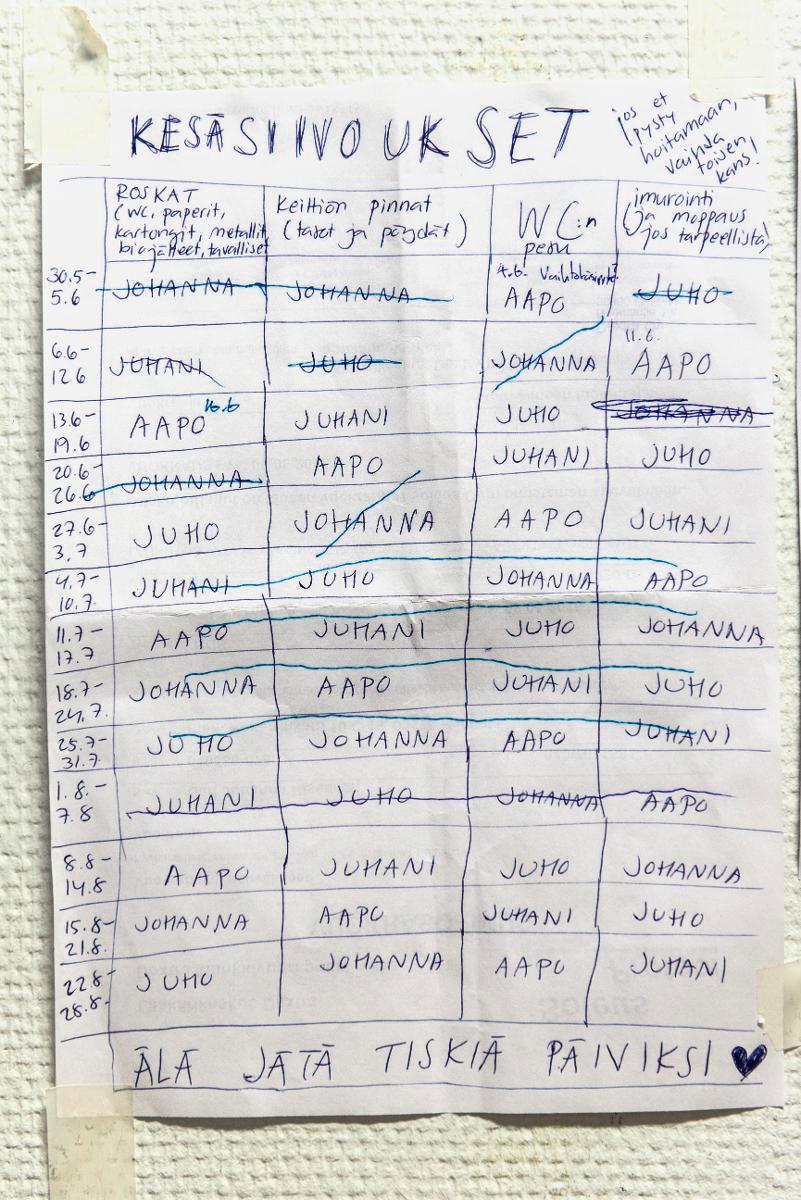 KESÄSIIVOUKSET
jos et
pysty
hoitamaan,
vaihda
toisen
kans!
ROSKAT
(WC, paperit,
kartongit, metallit,
biojätteet, tavalliset
Keittiön pinnat
(tasot ja pöydät)
WC:n
pesu
imurointi
(ja moppaus
jos tarpeellista)
30.5-
5.6
JOHANNA JOHANNA 4.6. AAPO JUHO
6.6-
12.6
JUHANI JUHO JOHANNA 11.6. AAPO
13.6-
19.6
AAPO 16.6 JUHANI JUHO JOHANNA
20.6-
26.6
JOHANNA AAPO JUHANI JUHO
27.6-
3.7
JUHO JOHANNA AAPO JUHANI
4.7-
10.7.
JUHANI JUHO JOHANNA AAPO
11.7-
17.7
AAPO JUHANI JUHO JOHANNA
18.7-
24.7.
JOHANNA AAPO JUHANI JUHO
25.7-
31.7.
JUHO JOHANNA AAPO JUHANI
1.8.-
7.8
JUHANI JUHO JOHANNA AAPO
8.8-
14.8
AAPO JUHANI JUHO JOHANNA
15.8-
21.8.
JOHANNA AAPO JUHANI JUHO
22.8-
28.8-
JUHO JOHANNA AAPO JUHANI
ÄLÄ JÄTÄ TISKIÄ PÄIVIKSI ♥